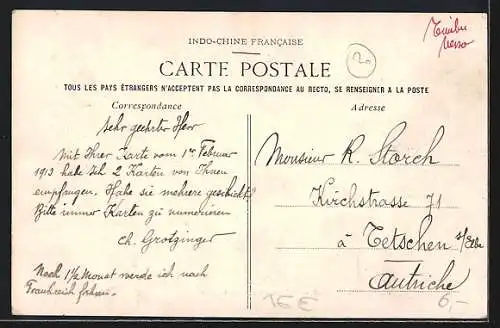 Timbre
verso
INDO-CHINE FRANÇAISE
20
CARTE POSTALE
TOUS LES PAYS ÉTRANGERS N'ACCEPTENT PAS LA CORRESPONDANCE AU RECTO, SE RENSEIGNER A LA POSTE
Correspondance
Adresse
Sehr geehrter Herr
Mit Ihrer Karte vom 1er Februar
1913 habe Ich 2 Karten von Ihnen
empfangen. Habe sie mehrere geschickt?
Bitte immer Karten zu numerieren
Ch. Grotzinger
Nach 1½ Monat werde ich nach
Frankreich fahren.
Monsieur R. Storch
Kirchstrasse 71
à Tetschen s/Elbe
Autriche
15 €
6,-